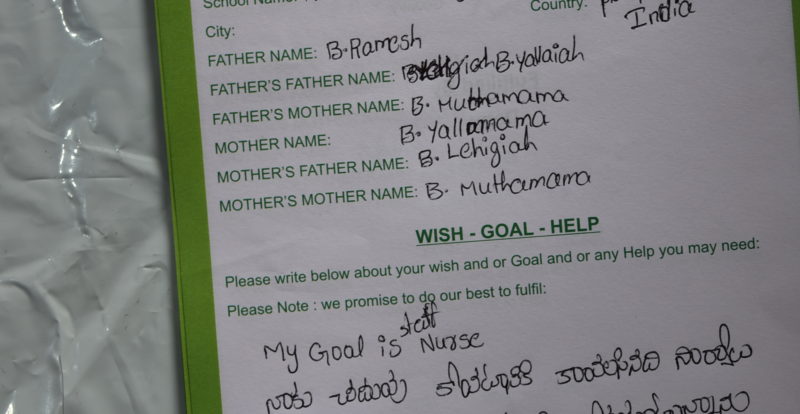 School Name:
Country:
India
City:
FATHER NAME: B. Ramesh
FATHER'S FATHER NAME: B. Yallaiah
FATHER'S MOTHER NAME: B. Muthamama
MOTHER NAME: B. Yallamama
MOTHER'S FATHER NAME: B. Lehigiah
MOTHER'S MOTHER NAME: B. Muthamama
WISH - GOAL - HELP
Please write below about your wish and or Goal and or any Help you may need:
Please Note : we promise to do our best to fulfil:
My Goal is staff Nurse
నాకు చదువు